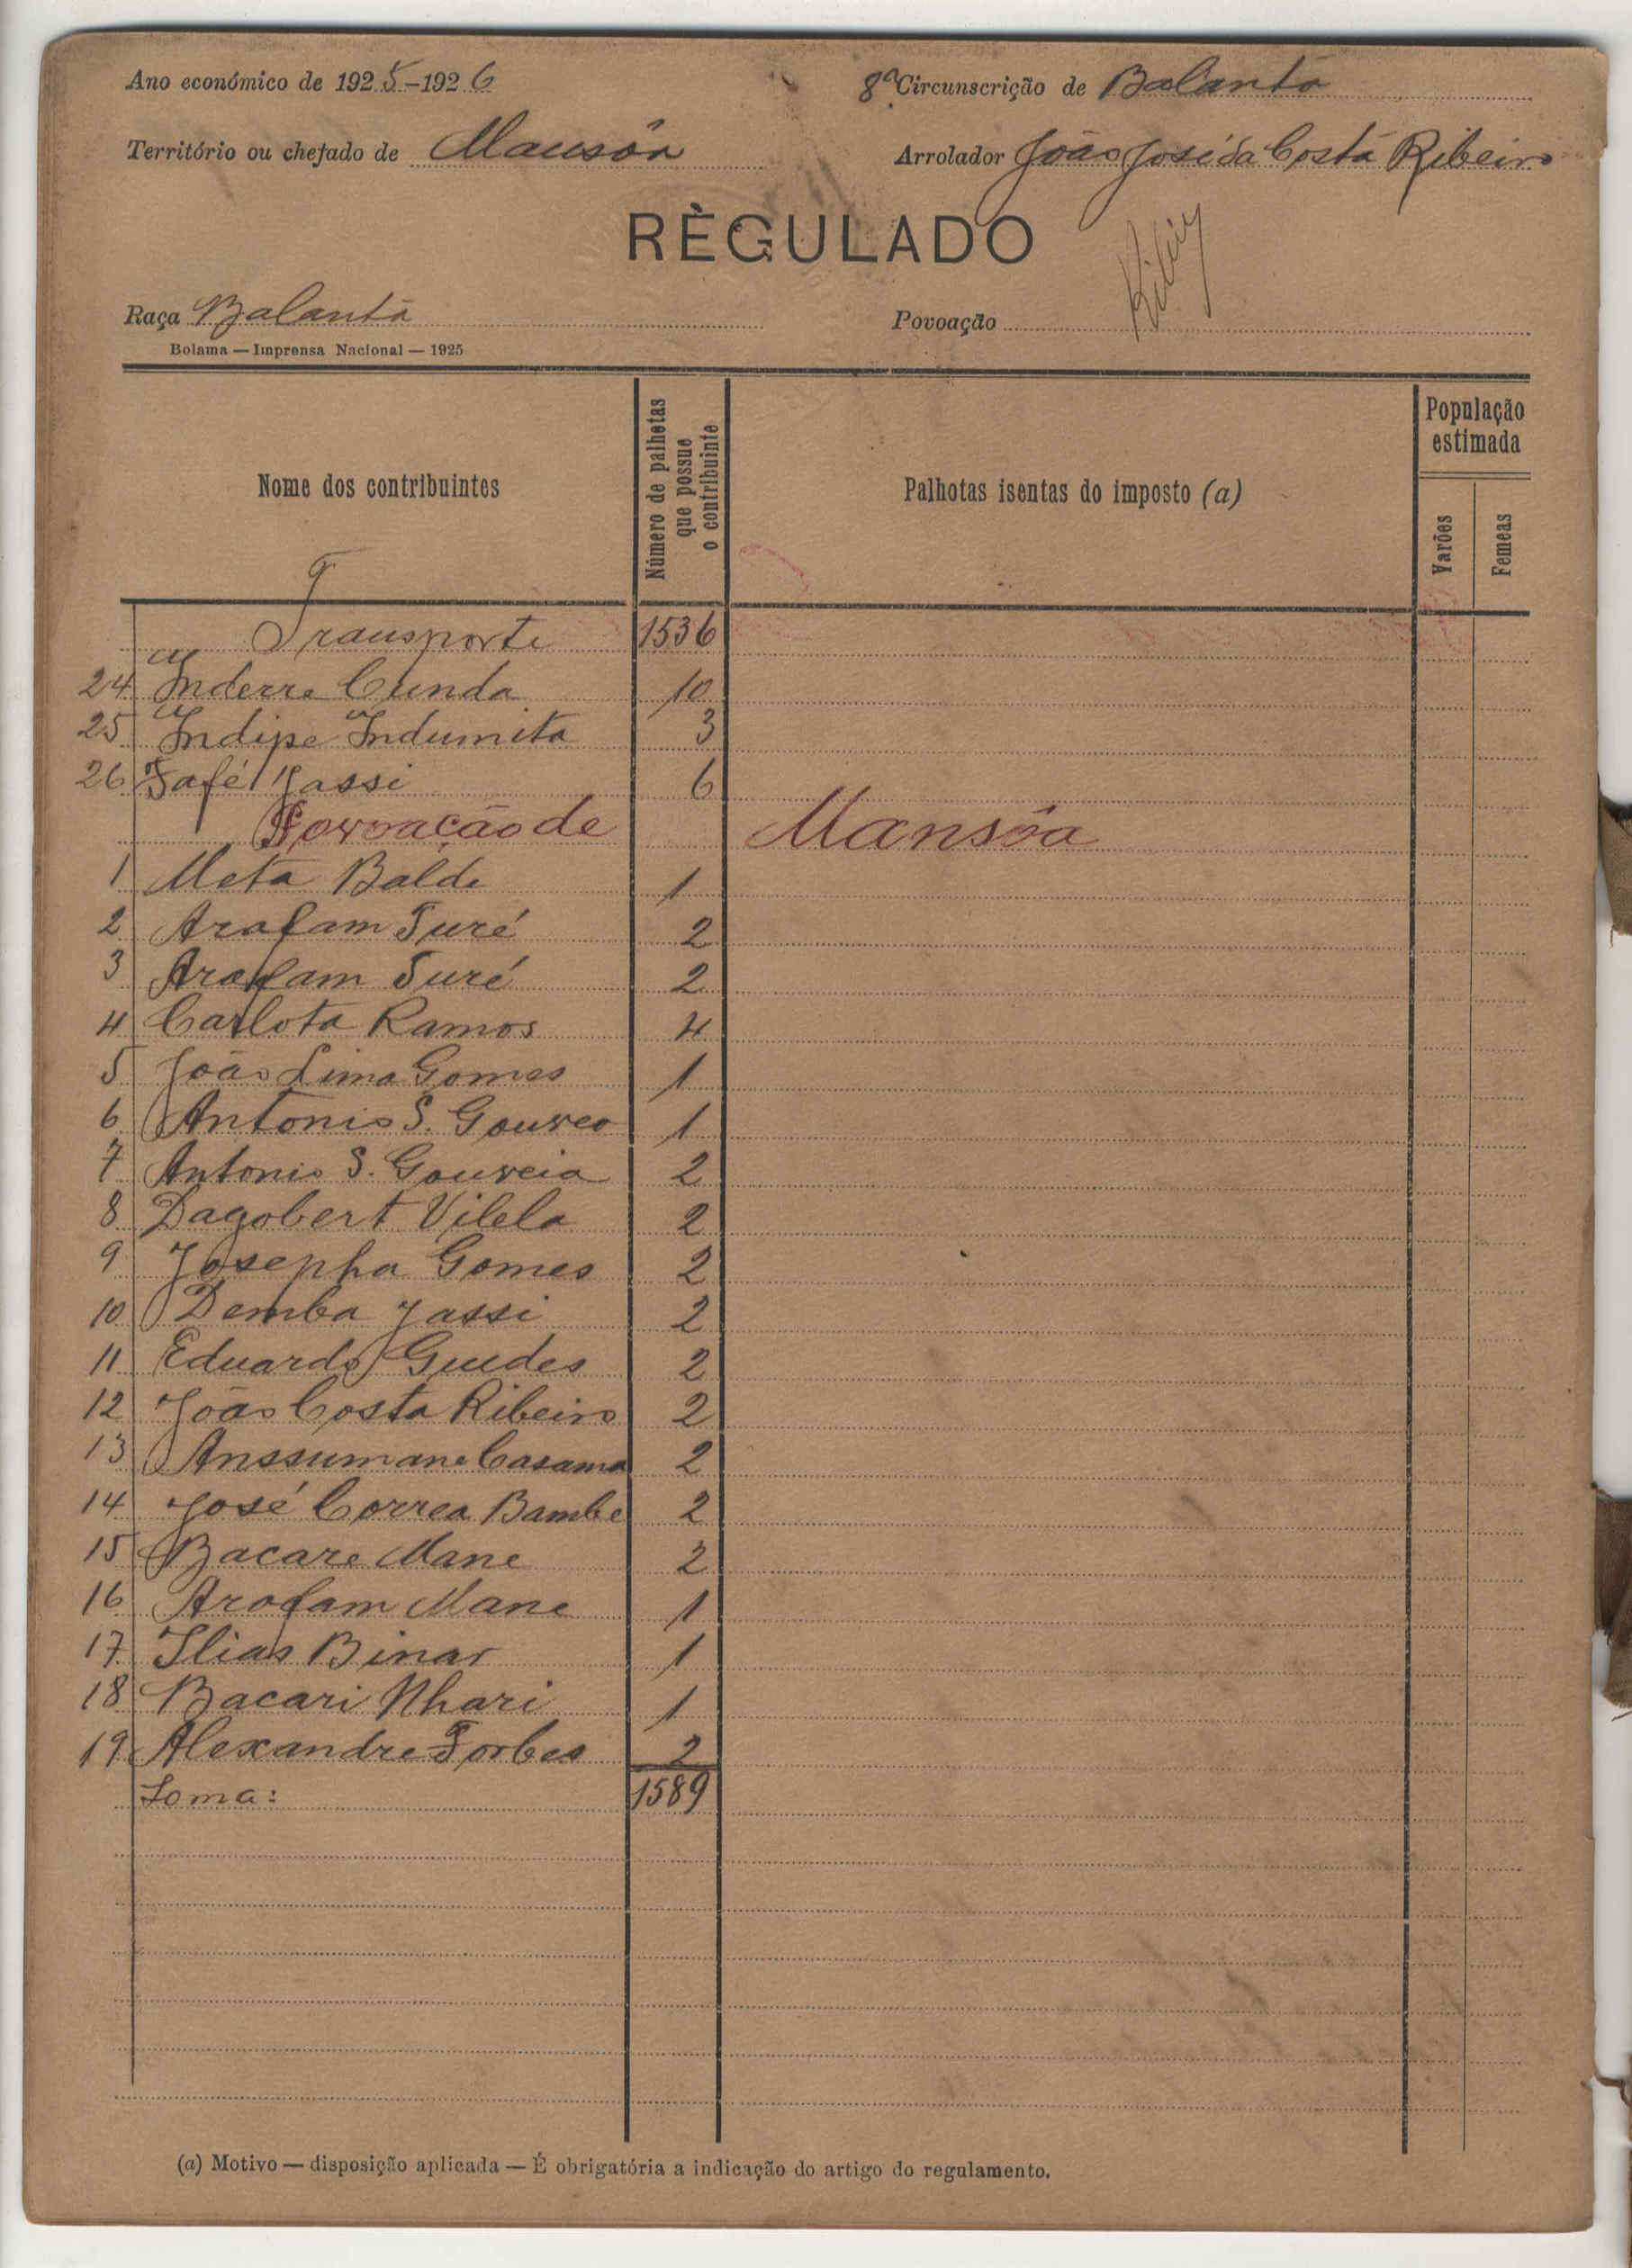 Ano económico de 1925-1926
8ª Circunscrição de Balanta
Território ou chefado de Mansôa
Arrolador João José da Costa Ribeiro
RÈGULADO
Raça Balanta
Povoação
Bolama — Imprensa Nacional — 1925
Nome dos contribuintes
Número de palhotas que possue o contribuinte
Palhotas isentas do imposto (a)
População estimada
Varões
Femeas
Transporte 1536
24 Inderre Cunda 10
25 Indipe Indumita 3
26 Fafé Jassi 6
Povoação de Mansôa
1 Meta Balde 1
2 Arafam Turé 2
3 Arafam Turé 2
4 Carlota Ramos 4
5 João Lima Gomes 1
6 Antonio S. Gouvea 1
7 Antonio S. Gouveia 2
8 Dagobert Vilela 2
9 Josepha Gomes 2
10 Demba Jassi 2
11 Eduardo Guedes 2
12 João Costa Ribeiro 2
13 Anssumane Casama 2
14 José Correa Bambe 2
15 Bacare Mane 2
16 Arofam Mane 1
17 Ilias Binar 1
18 Bacari Nhari 1
19 Alexandre Forbes 2
Soma: 1589
(a) Motivo — disposição aplicada — É obrigatória a indicação do artigo do regulamento.